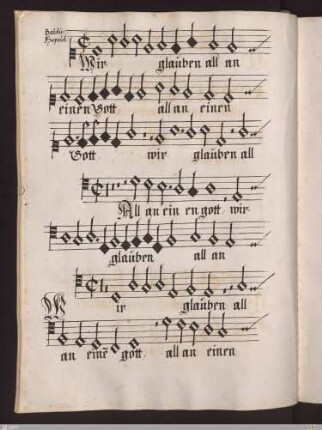 Wir glauben all an
einen Gott all an einen
Gott wir glauben all
All an ein en gott wir
glauben all an
Wir glauben all
an einē gott all an einen